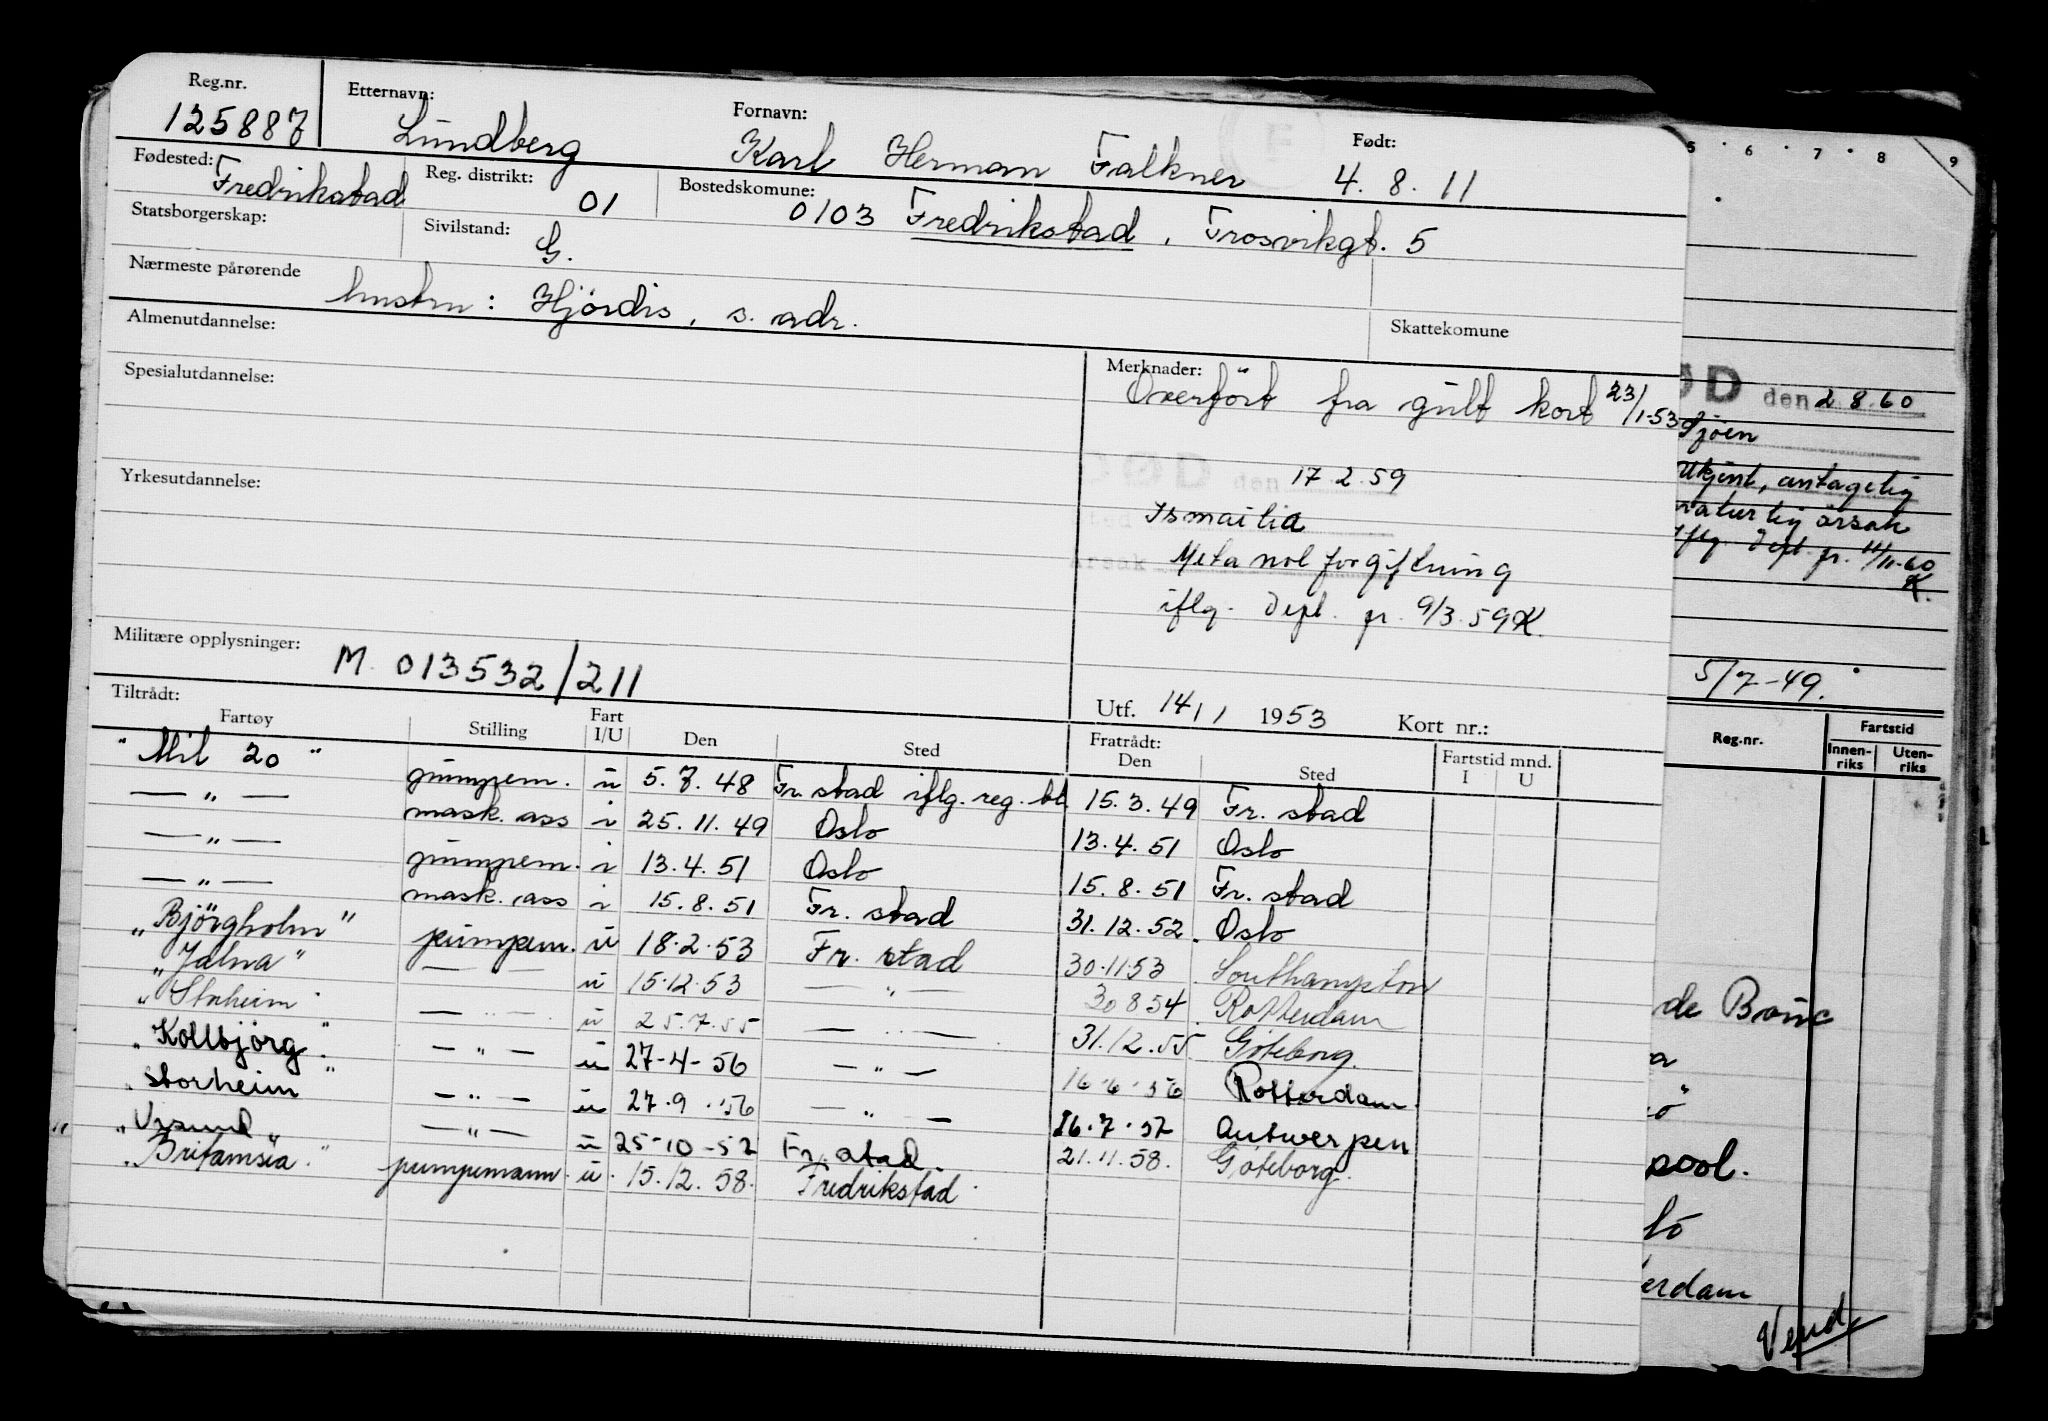 Reg.nr. Etternavn: Fornavn: Født:
125887 Lundberg Karl Herman Falkner 4.8.11
Fødested: Fredrikstad Reg. distrikt: 01 Bostedskomune: 0103 Fredrikstad, Trosvikgt. 5
Statsborgerskap: Sivilstand: G.
Nærmeste pårørende hustru: Hjördis, s. adr.
Skattekomune
Almenutdannelse:
Spesialutdannelse:
Yrkesutdannelse:
Militære opplysninger: M. 013532/211
Merknader:
Overfört fra gült kort 23/1-53
DØD den 17.2.59
Ismailia
Årsak Metanolforgiftning
iflg. Dept. pr. 9/3.59 K.
Utf. 14/1 1953 Kort nr.:
Tiltrådt: Fratrådt: Fartstid mnd.
Fartøy Stilling Fart I/U Den Sted Den Sted I U
"Mil 20" pumpem. u 5.7.48 Fr.stad iflg. reg. bl. 15.3.49 Fr. stad
— " — mask. ass i 25.11.49 Oslo 13.4.51 Oslo
— " — pumpem. i 13.4.51 Oslo 15.8.51 Fr. stad
— " — mask. ass i 15.8.51 Fr. stad 31.12.52. Oslo
"Björgholm" pumpem. u 18.2.53 Fr. stad 30.11.53 Southampton
"Jalna" — — u 15.12.53 — " — 30 8 54 Rotterdam
"Storheim" — " — u 25.7.55 — " — 31.12.55 Göteborg.
"Kollbjörg" — " — u 27-4-56 — " — 16.6.56 Rotterdam.
"Storheim — " — u 27.9.56 — " — 16.7.57 Antwerpen
"Vrsund" — " — u 25-10-57 Fr. stad. 21.11.58. Göteborg.
"Britamsea" pumpemann. u. 15.12.58. Fredrikstad.
5 6 7 8 9
ØD den 2 8.60
Sjöen
Ukjent, antagelig
naturlig årsak
iflg. Dept. pr. 11/11-60
K.
5/7-49.
Reg.nr. Fartstid
Innen-riks Uten-riks
de
pool.
erdam
Vend